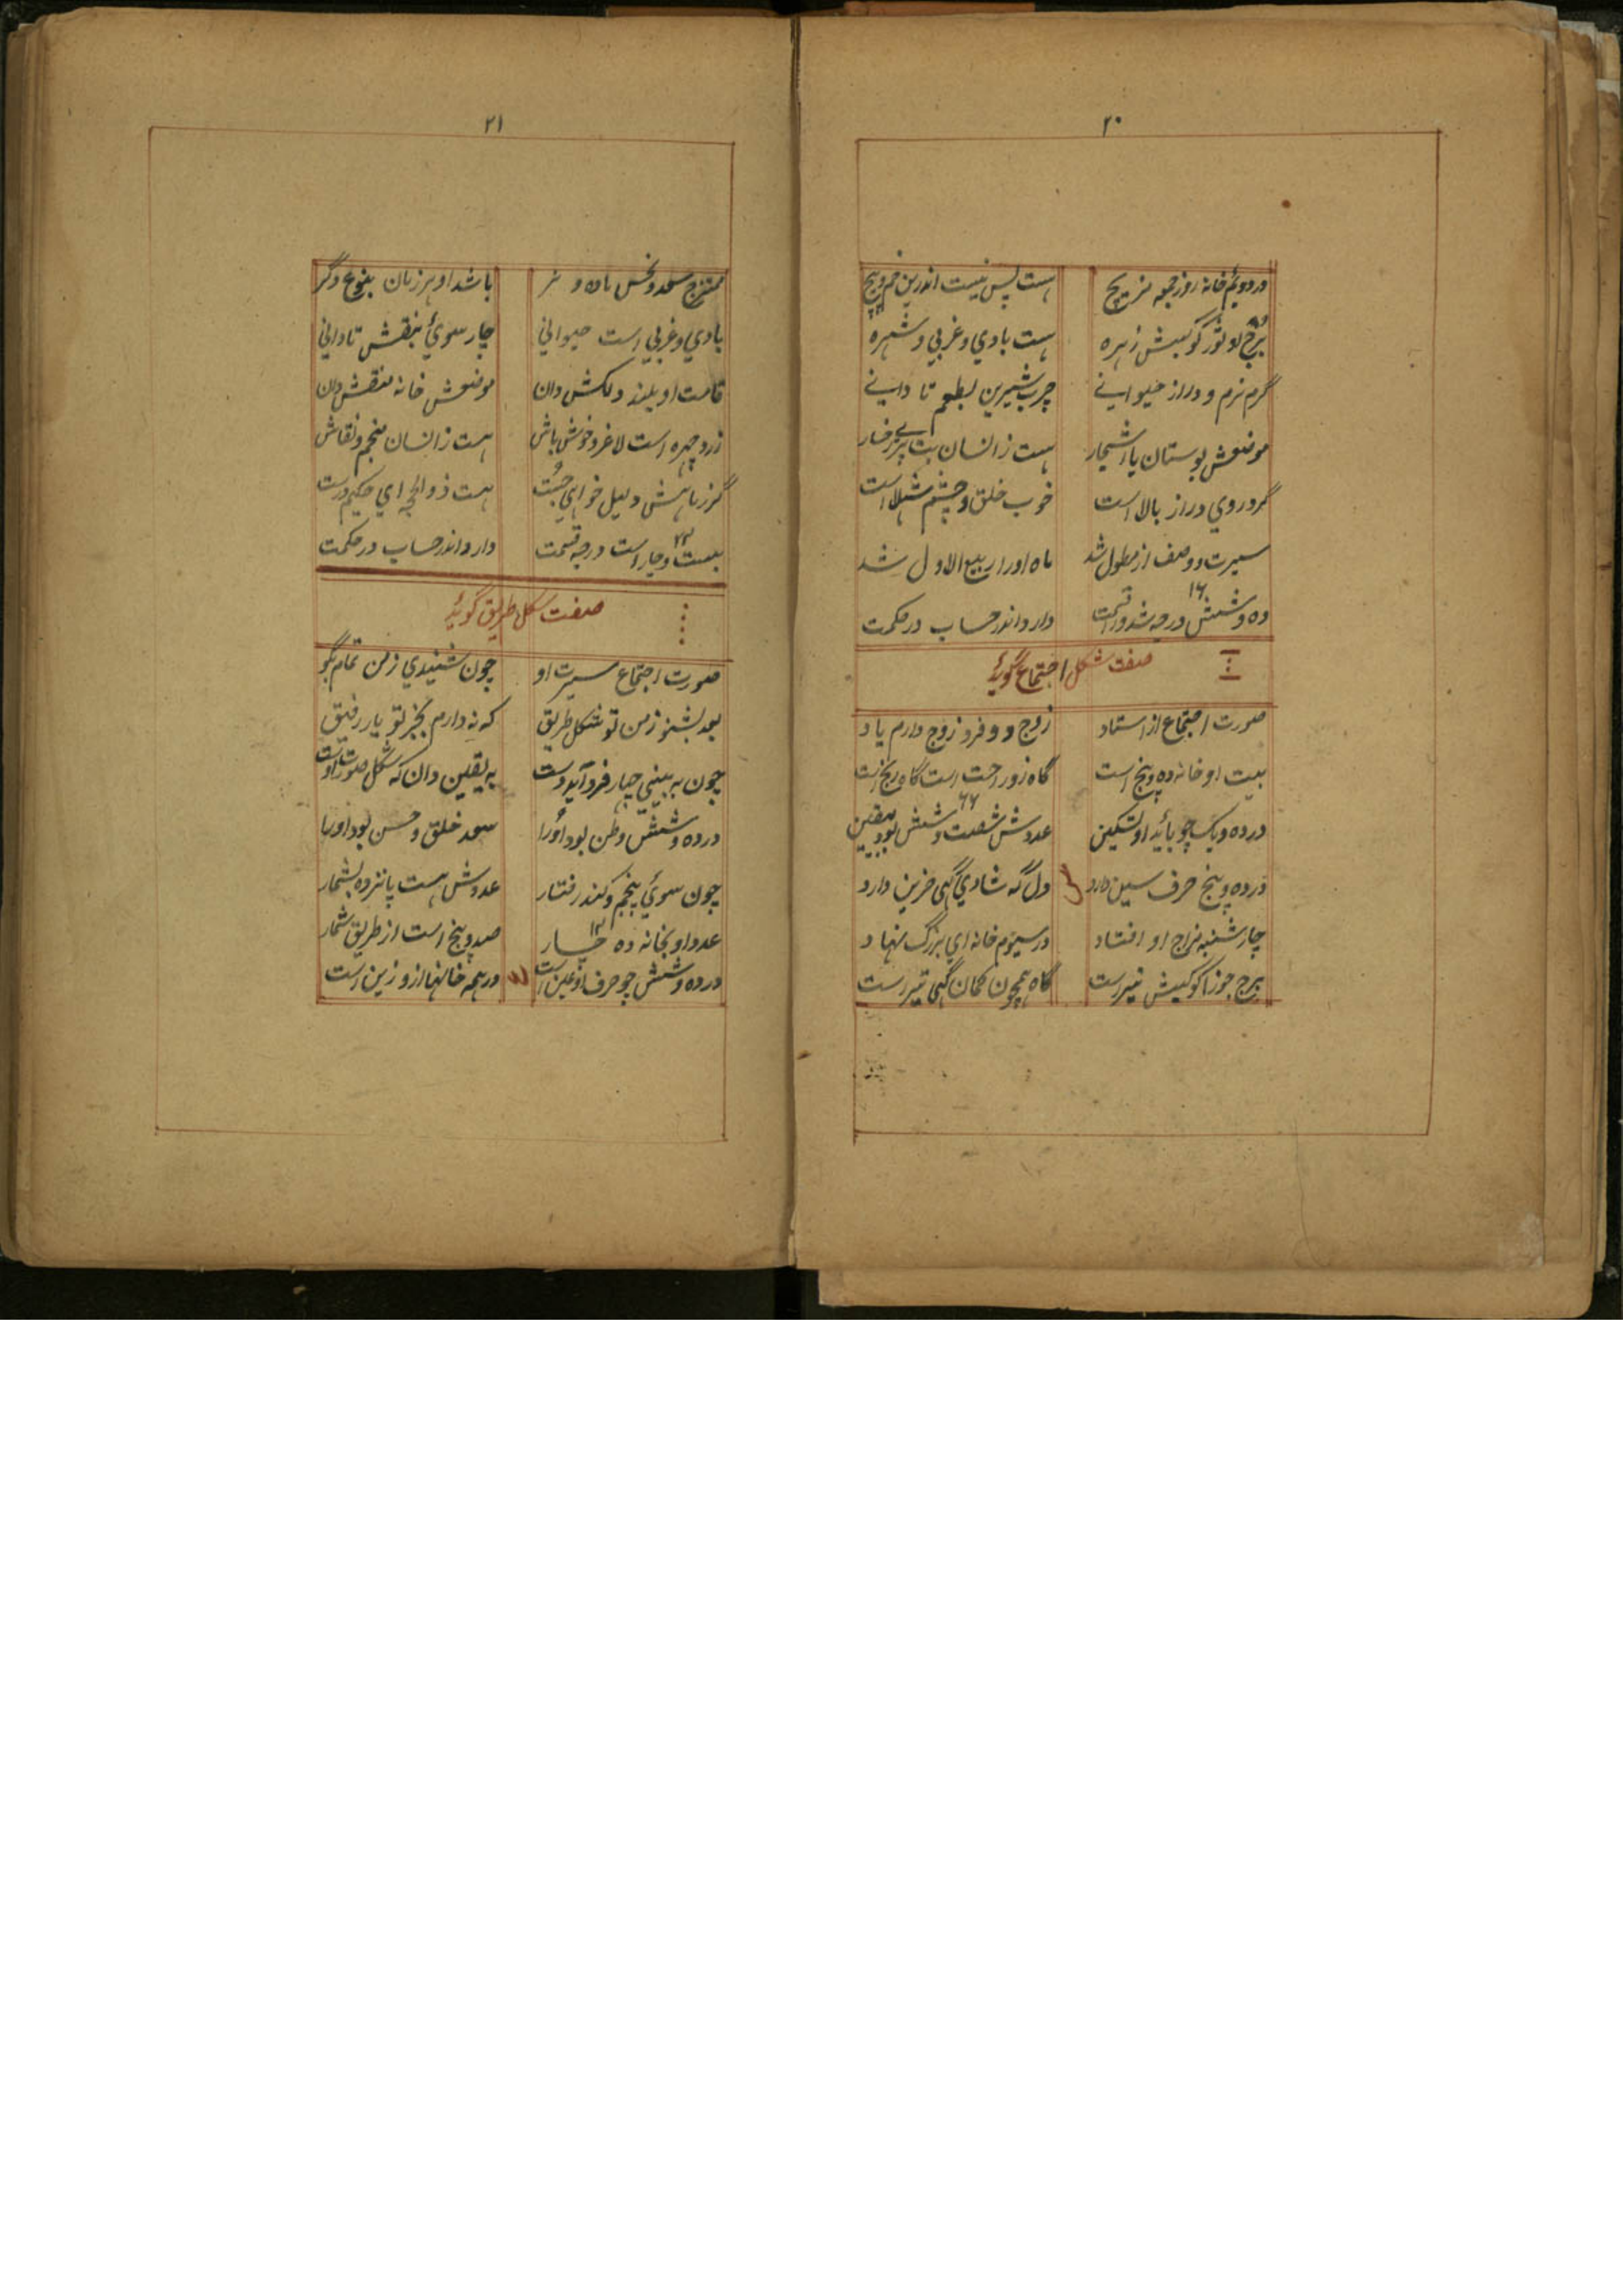 ۲۰
در دویم خانه روز جمعه مزیج هست پس نیست اندرین خم و پیچ
برج او ثور کوکبش زهره هست بادي و غربي و شهره
گرم نرم و دراز حیوانے چرب شیرین بطعم تا دانے
موضعش بوستان یا اشجار هست ز انسان بت پری رخسار
گرد روي دراز بالا است خوب خلق و چشم شهلا است
سیرت و وصف از مطول شد ماه او را ربیع الاول شد
۱۶
ده و شش درجه شد قسمت دارد اندر حساب در حکمت
صفت شکل اجتماع گوید
صورت اجتماع از استاد زوج و دو فرد زوج دارم یاد
بیت او خانه ده و پنج است گاه زو راحت است گاه رنج است
۶۶
در ده و یک چو یابد او تسکین عددش شصت و شش بود بیقین
در ده و پنج حرف سین دارد س دل گه شادي گهی حزین دارد
چارشنبه مزاج او افتاد در سیوم خانه اي بزرگ نهاد
برج جوزا کوکبش تیر است گاه همچون کمان گهی تیر است
۲۱
ممتزج سعد و نحس ماده و نر باشد او هر زمان بنوع دگر
بادي و غربي است حیواني چار سوئ بنقش تا داني
قامت او بلند و لکش دان موضعش خانه منقش دان
زرد چهره است لاغر و خوش باش هست ز انسان منجم و نقاش
گر ز ماهش دلیل خواهي جست هست ذوالحجه اي حکیم درست
۲۴
بیست و چار است درجه قسمت دارد اندر حساب در حکمت
صفت شکل طریق گوید
صورت اجتماع سیرت او چون شنیدي ز من تمام بگو
بعد بشنو ز من تو شکل طریق که نه دارم بجز تو یار رفیق
چون به بیني چهار فرد آید دست به یقین دان که شکل صورت اوست
در ده و شش وطن بود او را سعد خلق و حسن بود او را
چون سوئ پنجم کند رفتار عددش هست پانزده بشمار
عدد او بخانه ده چار صد و پنج است از طریق شمار
در ده و شش چو حرف او عین است ع در همه خانها ازو زین است